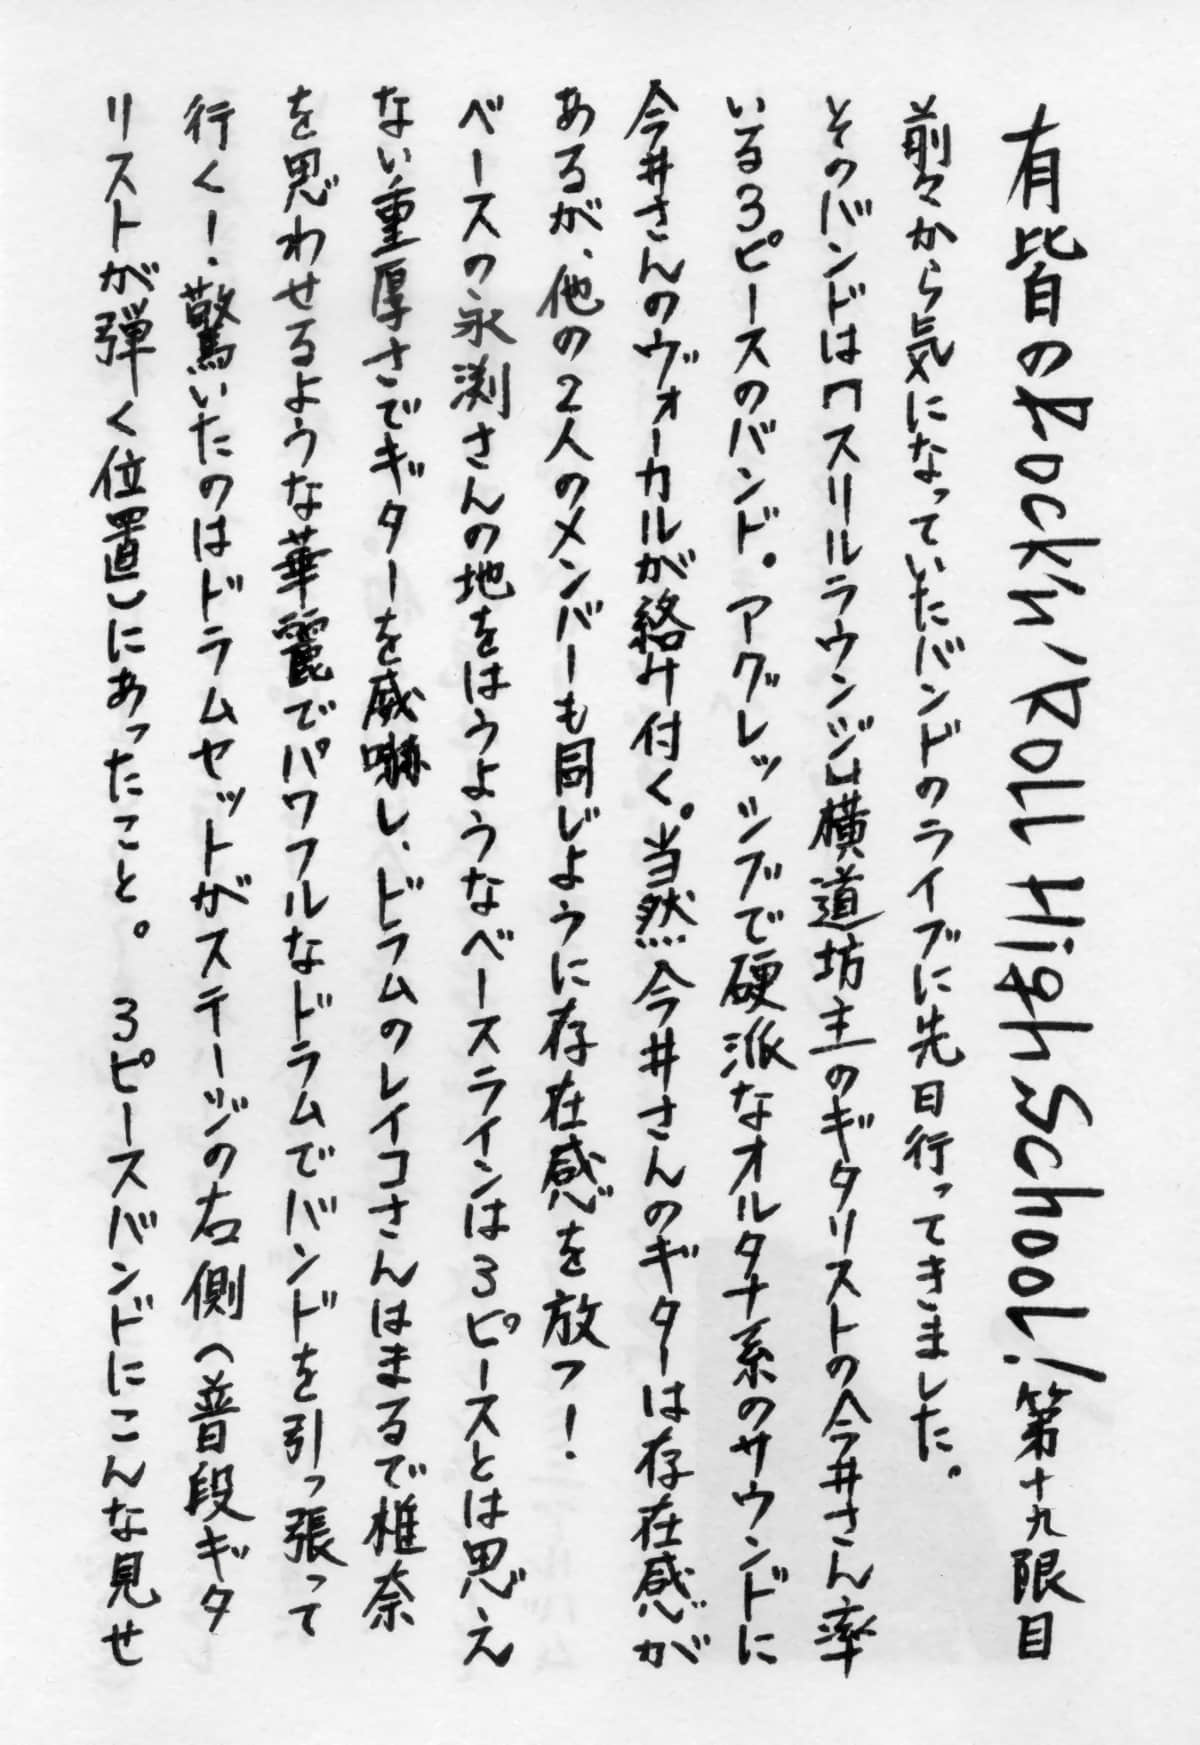 有皆のRock'n'Roll High School!第十九限目
前々から気になっていたバンドのライブに先日行ってきました。
そのバンドは『スリルラウンジ』横道坊主のギタリストの今井さん率
いる3ピースのバンド。アグレッシブで硬派なオルタナ系のサウンドに
今井さんのヴォーカルが絡み付く。当然今井さんのギターは存在感が
あるが、他の2人のメンバーも同じように存在感を放つ!
ベースの永渕さんの地をはうようなベースラインは3ピースとは思え
ない重厚さでギターを威嚇し、ドラムのレイコさんはまるで椎奈
を思わせるような華麗でパワフルなドラムでバンドを引っ張って
行く!驚いたのはドラムセットがステージの右側(普段ギタ
リストが弾く位置)にあったこと。 3ピースバンドにこんな見せ